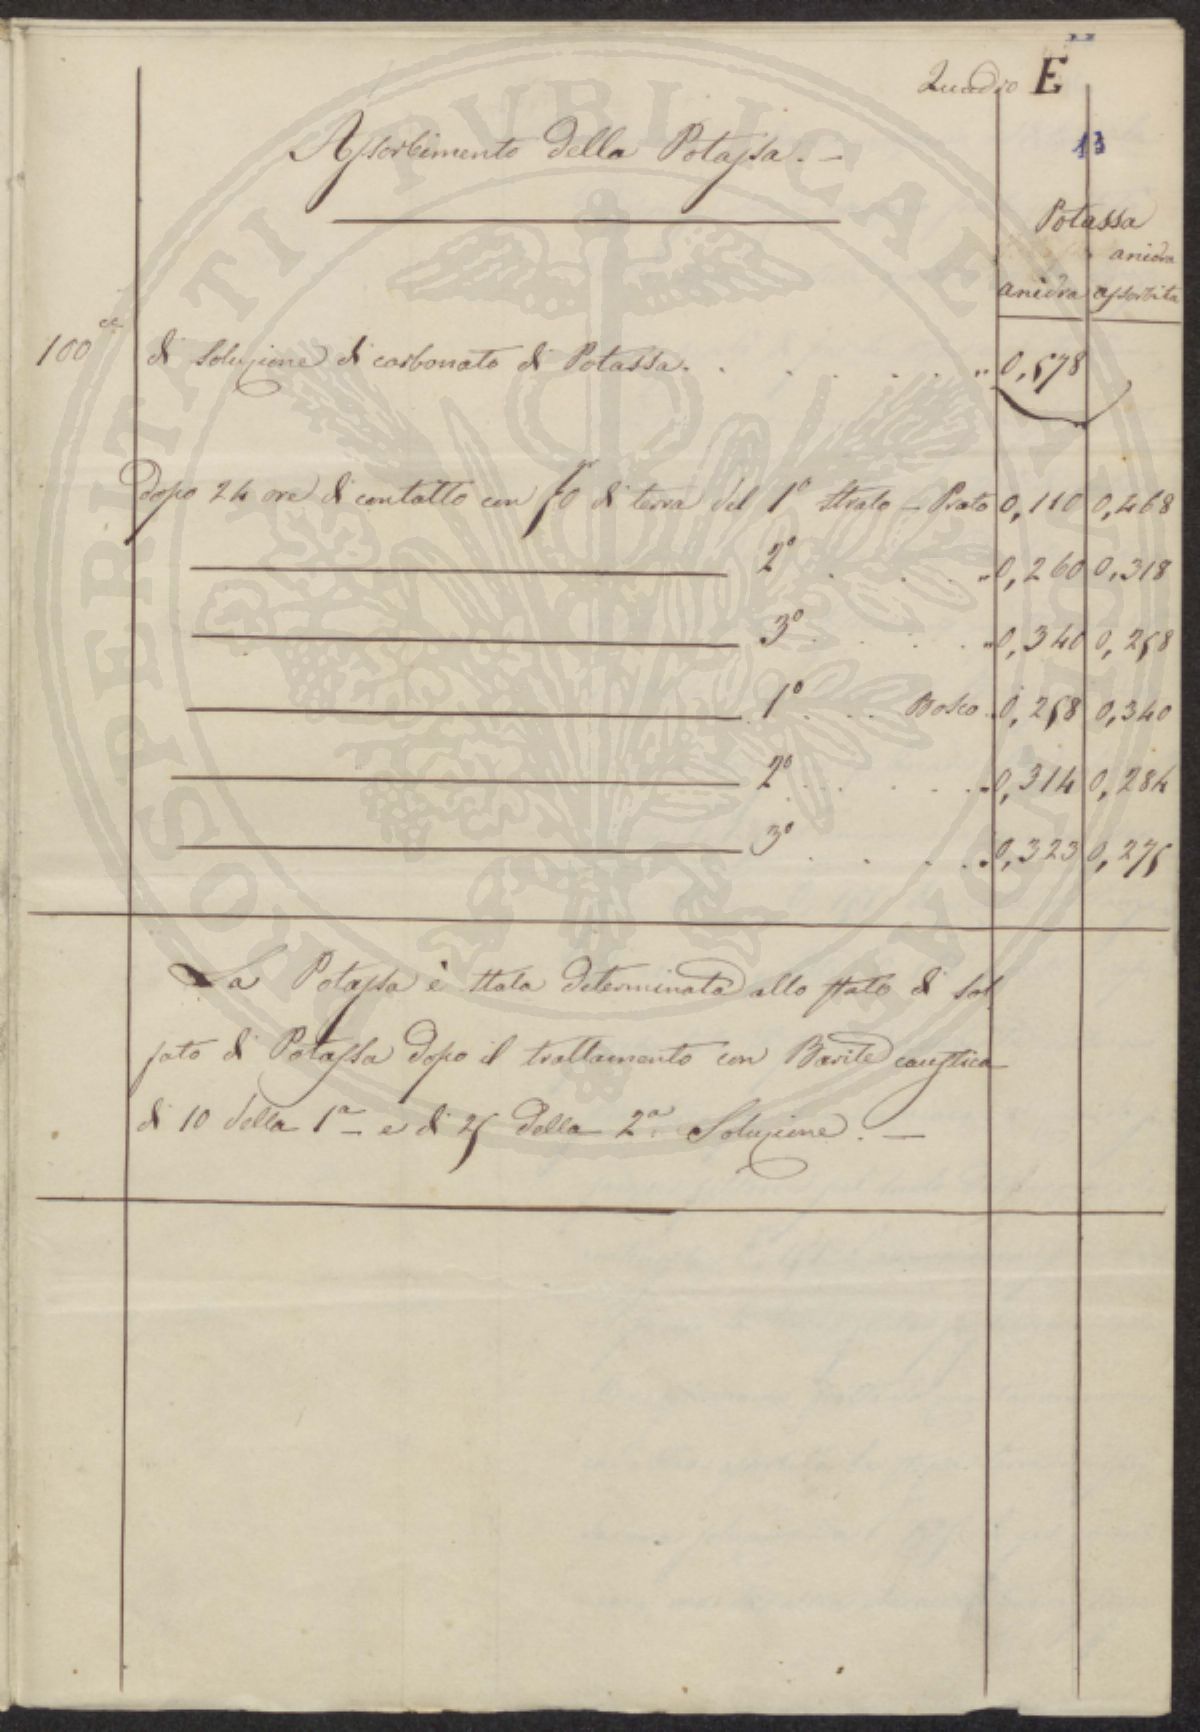 Quadro E
13
Assorbimento della Potassa. —
Potassa
anidra
anidra assorbita
100 cc di soluzione di carbonato di Potassa. . . . . . . " 0,578
dopo 24 ore di contatto con 50 gr di terra del 1º strato — Prato 0,110 0,468
2º . . . . " 0,260 0,318
3º . . . . " 0,340 0,258
1º . . . Bosco 0,258 0,340
2º . . . . . 0,314 0,284
3º . . . . 0,323 0,275
La Potassa è stata determinata allo stato di sol
fato di Potassa dopo il trattamento con Barite caustica
di 10 della 1ª e di 25 della 2ª Soluzione. —
PROSPERITATI PVBLICAE AVGENDAE